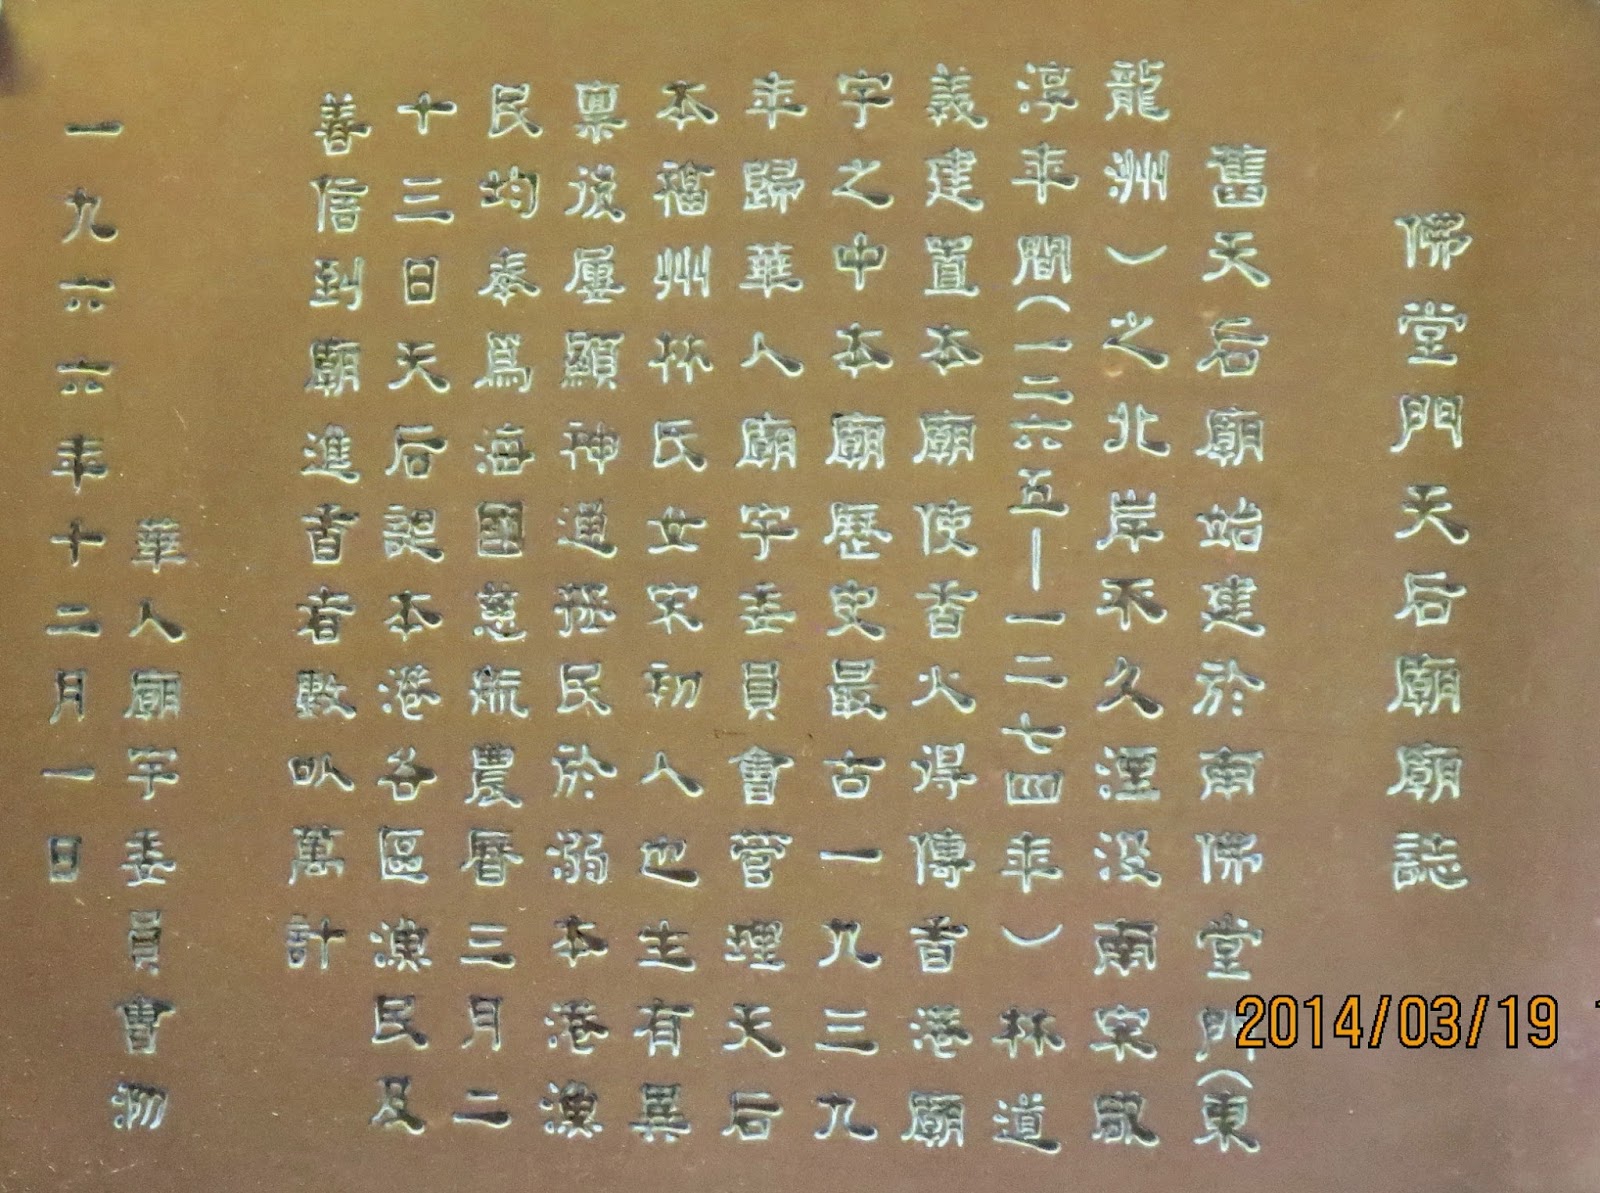 佛堂門天后廟廟誌
舊天后廟始建於南佛堂門（東
龍洲）之北岸不久湮沒南宋咸
淳年間（一二六五—一二七四年）林道
義建置本廟使香火得傳香港廟
宇之中本廟歷史最古一九三九
年歸華人廟宇委員會管理天后
本福州林氏女宋初人也生有異
稟後屢顯神通拯民於溺本港漁
民均奉為海國慈航農曆三月二
十三日天后誕本港各區漁民及
善信到廟進香者數以萬計
華人廟宇委員會泐
一九六六年十二月一日
2014/03/19